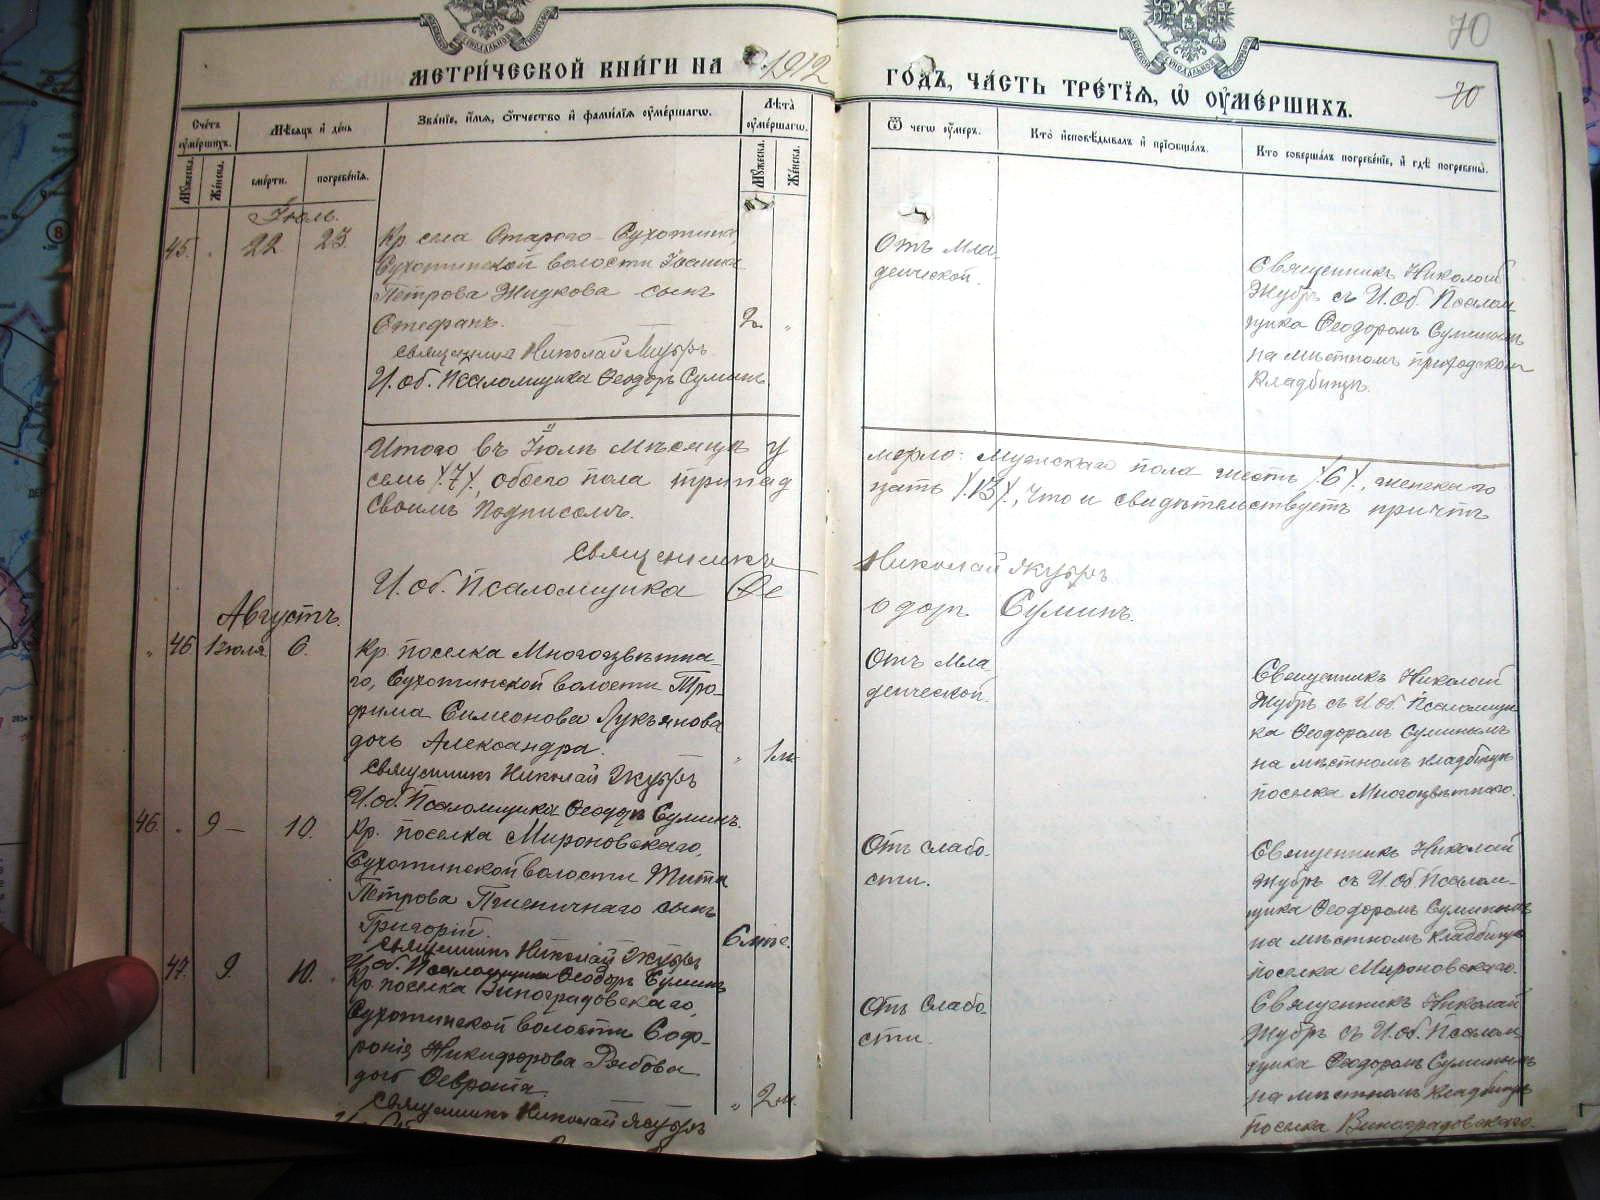 МЕТРИ́ЧЕСКОЙ КНИ́ГИ НА 1912
ГОДЪ, ЧА́СТЬ ТРЕ́ТІѦ, Ѡ҆ ОУ҆МЕ́РШИХЪ.
70
70
Сче́тъ оу҆ме́ршихъ.
Мѣ́сѧцъ и҆ де́нь
Зва́нїе, и҆́мѧ, ѻ҆́тчество и҆ фами́лїѧ оу҆ме́ршагѡ.
Лѣ́та оу҆ме́ршагѡ.
Му́жеска.
Же́нска.
сме́рти.
погребе́нїѧ.
Му́жеска.
Же́нска.
Ѿ чегѡ̀ оу҆́меръ.
Кто̀ и҆сповѣ́дывалъ и҆ прїѡбща́лъ.
Кто̀ соверша́лъ погребе́нїе, и҆ гдѣ̀ погребены̀.
Іюль.
45. 22 23.
Кр. села Стараго-Сухотина,
Сухотинской волости
Петрова Жидкова сынъ
Стефанъ. 2м.
Священникъ Николай
И. об. Псаломщика Ѳеодоръ Суминъ
Отъ мла-
денческой.
Священникъ Николай
съ И. об. Псалом-
щика Ѳеодоромъ Суминымъ
на мѣстномъ
кладбищѣ.
Итого въ Іюлѣ мѣсяцѣ у
мерло: мужскаго пола шесть /.6/., женскаго
семь /.7/., обоего пола тринад
цать /.13/., что и свидѣтельствуетъ причтъ
своимъ подписомъ.
Священникъ
Николай
И. об. Псаломщика Ѳе
одоръ Суминъ.
Августъ.
46 1 Іюля 6.
Кр. поселка Многоцвѣтна-
го, Сухотинской волости Тро-
фима Симеонова Лукьянова
дочь Александра. 1м.
Священникъ Николай
И. об. Псаломщика Ѳеодоръ Суминъ.
Отъ мла
денческой.
Священникъ Николай
съ И. об. Псаломщи
ка Ѳеодоромъ Суминымъ
на мѣстномъ кладбищѣ
поселка Многоцвѣтнаго.
46. 9 — 10.
Кр. поселка Мироновскаго,
Сухотинской волости Тита
Петрова Пшеничнаго сынъ
Григорій.
Священникъ Николай
И. об. Псаломщика Ѳеодоръ Суминъ
Отъ слабо-
сти.
Священникъ Николай
съ И. об. Псалом-
щика Ѳеодоромъ Суминымъ
на мѣстномъ кладбищѣ
поселка Мироновскаго.
47. 9. 10.
Кр. поселка Виноградовскаго,
Сухотинской волости Софо-
ронія Никифорова Рябова
дочь Февронія. 2м.
Священникъ Николай
Отъ слабо-
сти.
Священникъ Николай
съ И. об. Псалом-
щика Ѳеодоромъ Суминымъ
на мѣстномъ кладбищѣ
поселка Виноградовскаго.